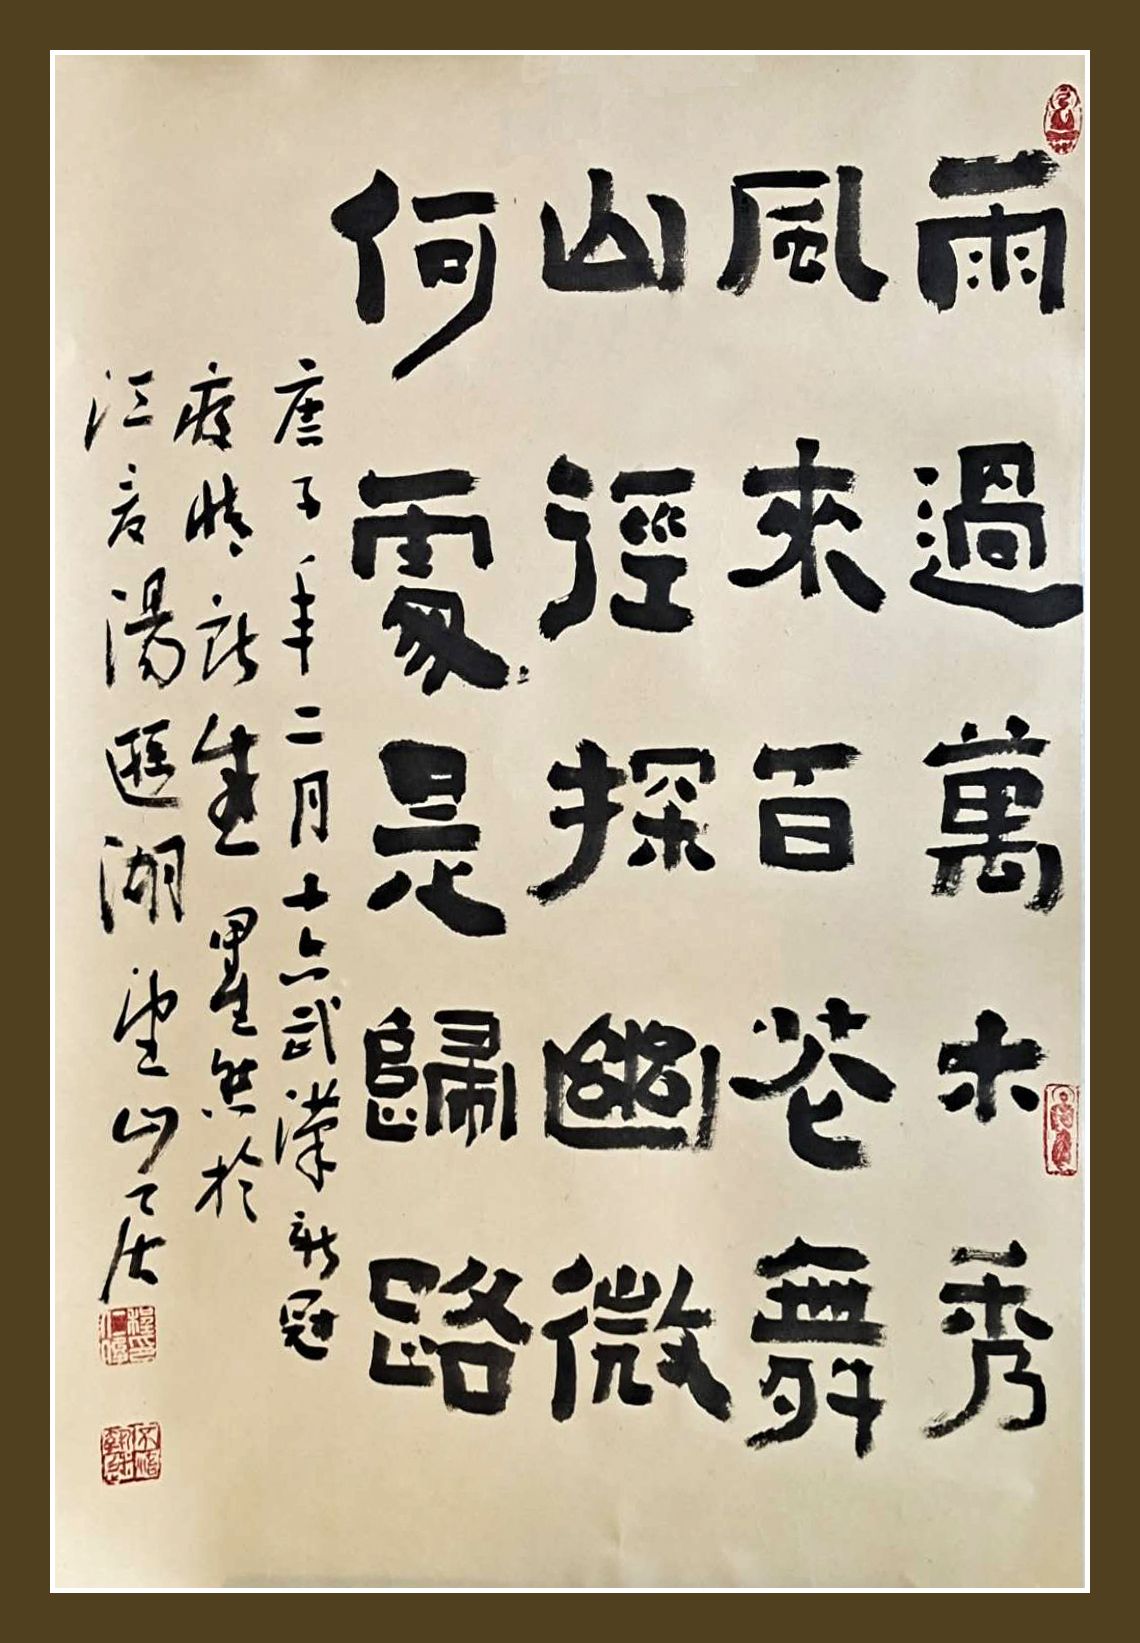 雨過萬木秀
風來百花舞
山徑探幽微
何處是歸路
庚子年二月十六武漢新冠
疫情 於
江夏湯遜湖望山居